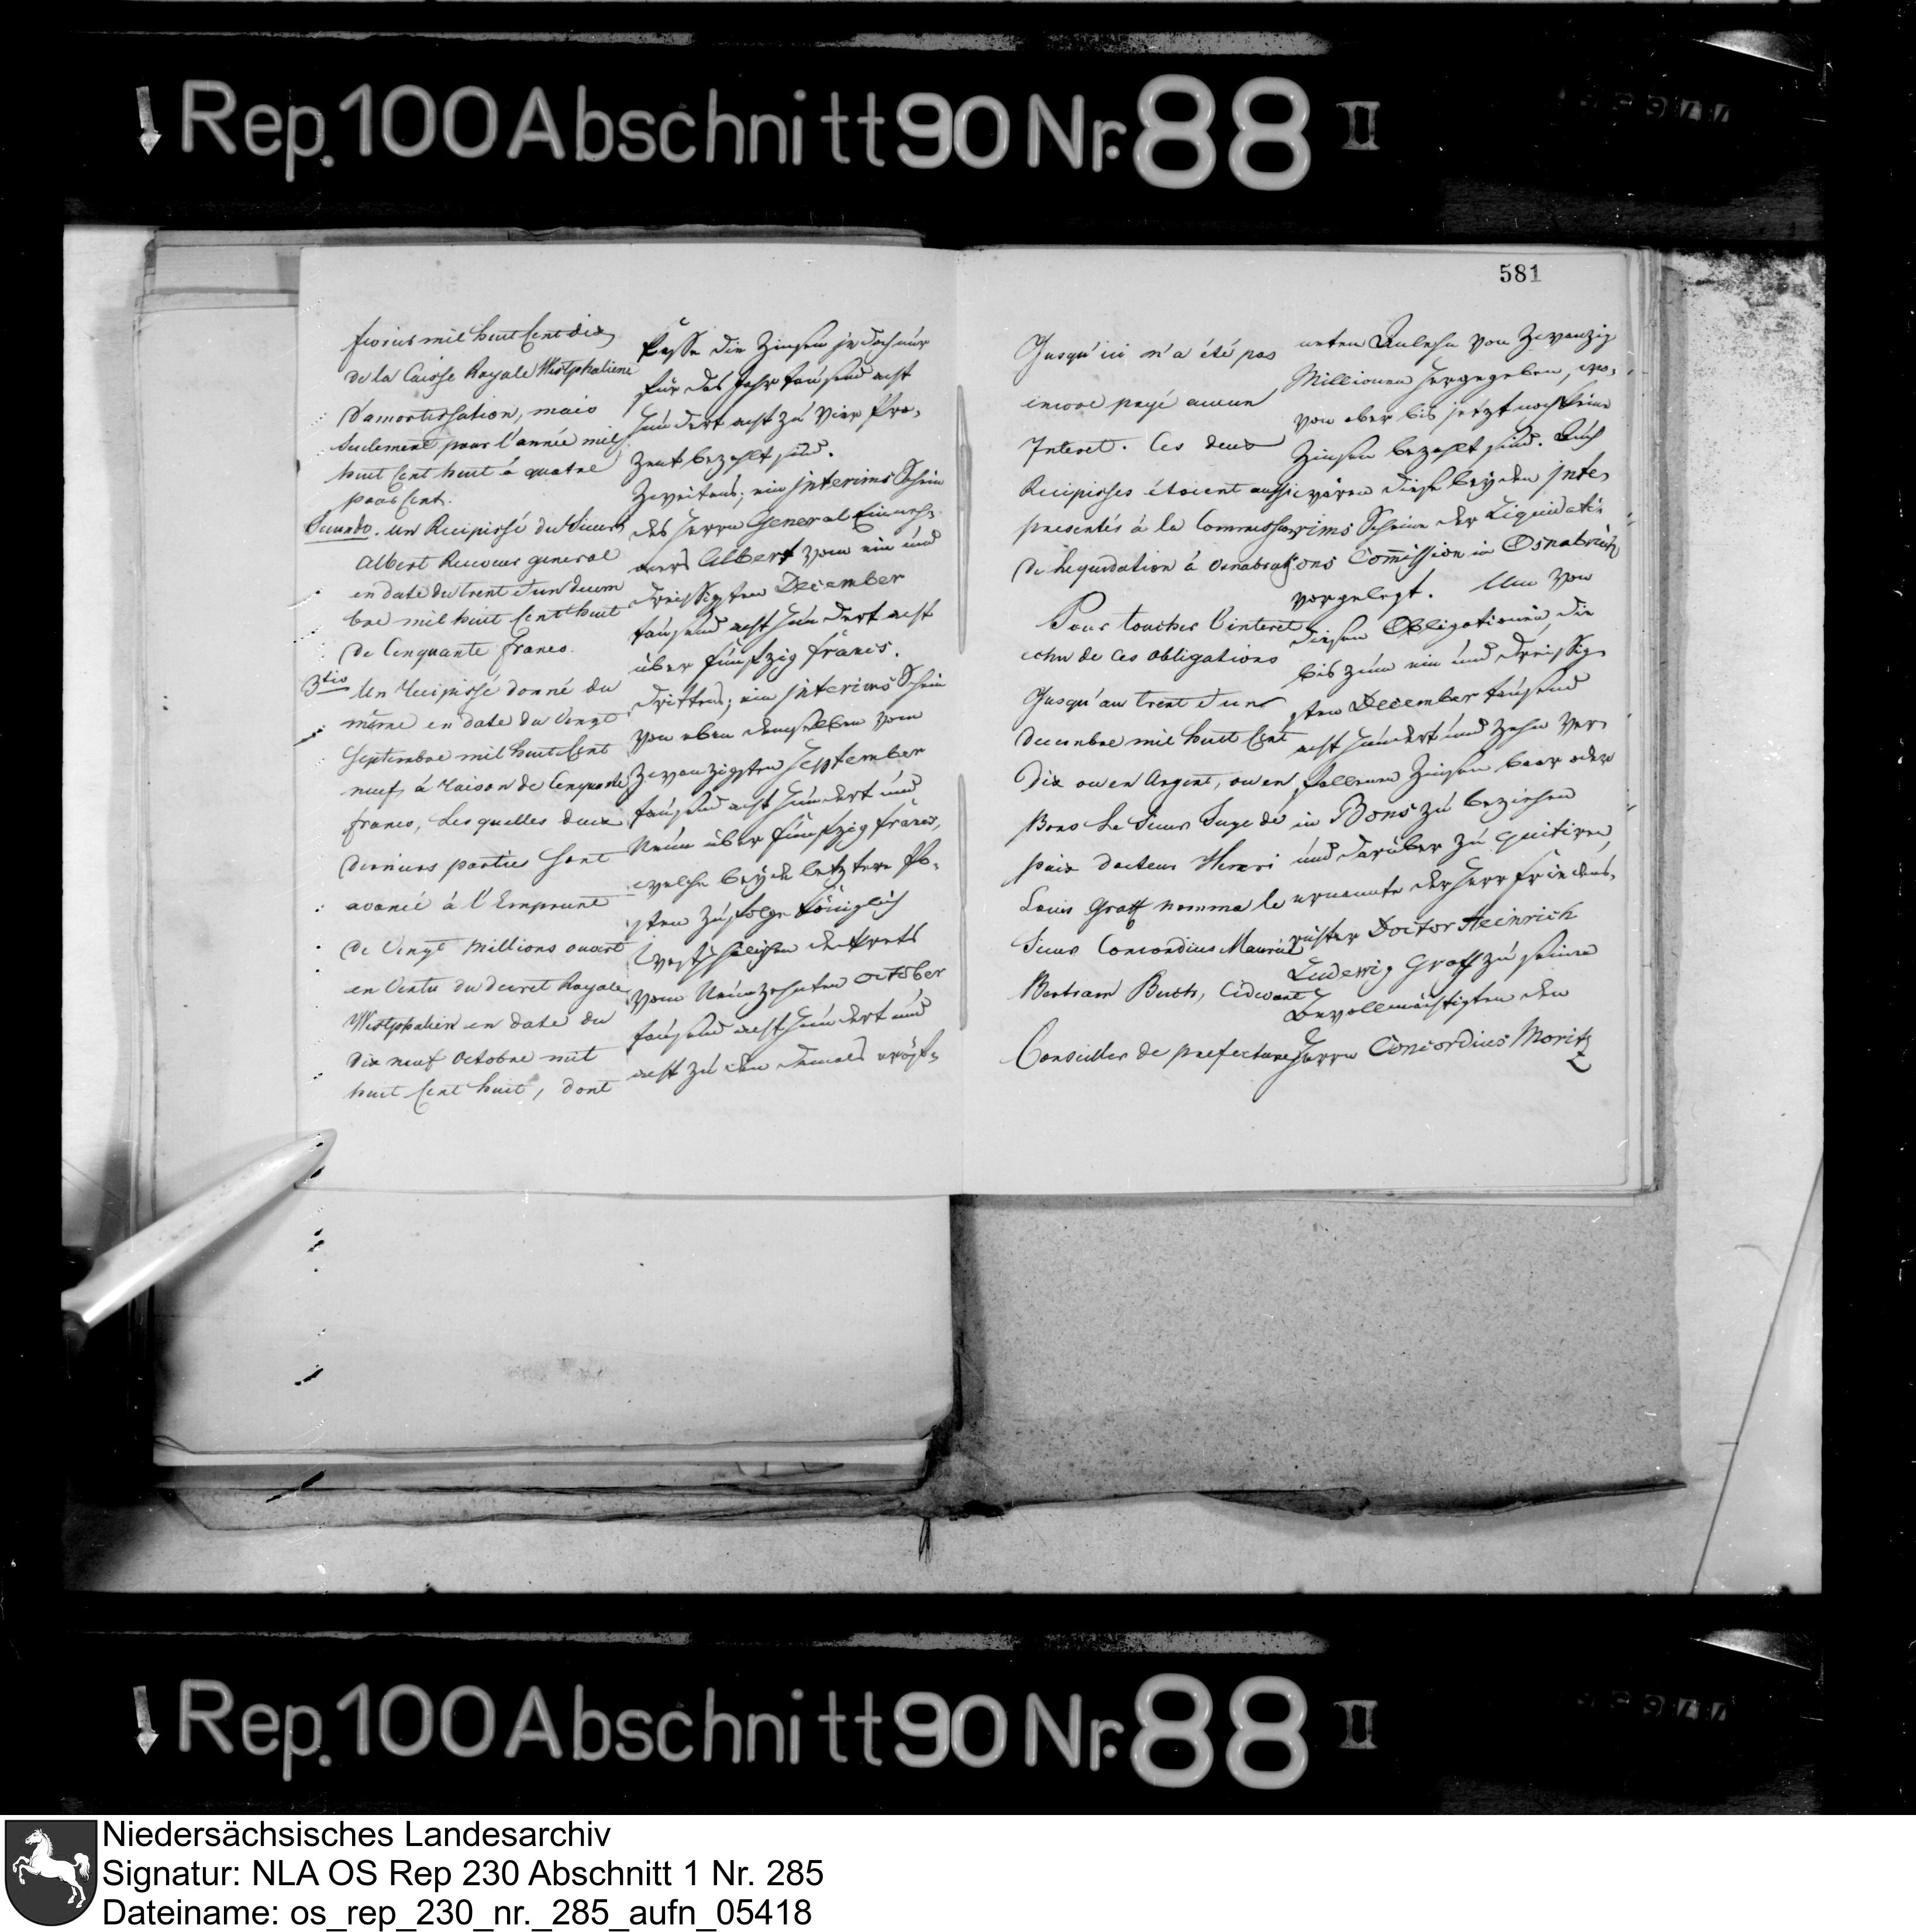 Rep. 100 Abschnitt 90 Nr. 88 II
581
de la Caisse Royale Westphaliene
d'amortissation, mais
seulement pour l'année mil
huit Cent huit à quatre
pour Cent.
Secundo. un Recipissé du Sieur
Albert Receveur general
en date du trent et un decem
bre mil huit Cent huit
de Cinquante francs.
3tio Un Recipissé donné du
même en date du Vingt
Septembre mil huit Cent
neuf, à raison de Cinquante
francs, Lesquelles deux
derniers partie sont
avancé à l'Emprunt
de Vingt Millions ouvert
en Vertu du decret Royale
Westphalien en date du
dix neuf Octobre mil
huit Cent huit, dont
Casse die Zinsen jedoch nur
für das Jahr tausend acht
hundert acht zu Vier Pro-
zent bezahlt sind.
Zweitens; ein Interims Schein
des Herrn General Einneh-
mers Albert vom ein und
dreissigsten December
tausend acht hundert acht
über fünfzig francs.
Drittens; ein Interims Schein
von eben demselben vom
Zwanzigsten September
tausend acht hundert und
Neun über fünfzig francs,
welche beyde letztere Po-
sten zufolge Königlich
Westphälischen Decrets
vom Neunzehnten October
tausend acht hundert und
acht zu dem damals eröf-
Jusqu'ici n'a été pas
encore payé aucun
Interet. Ces deux
Recipisses étoient aussi
presentés à la Commission
de liquidation à Osnabruk
Pour toucher l'interet
echu de ces obligations
Jusqu'au trent et un
decembre mil huit Cent
dix ou en Argent, ou en
Bons Le Sieur Juge de
paix docteur Henri
Louis Graff nomma le
Sieur Concordius Maurice
Bertram Buch, Cidevant
Conseiller de prefecture
neten Anlehn von Zwanzig
Millionen hergegeben, wo-
von aber bis jetzt noch keine
Zinsen bezahlt sind. Auch
wären diese beyden Inte-
rims Scheine der Liquidati-
ons Commission in Osnabrück
vorgelegt. Um von
diesen Obligationen die
bis zum ein und dreissig-
sten December tausend
acht hundert und zehn ver-
fallenen Zinsen baar oder
in Bons zu beziehen
und darüber zu quitiren,
ernannte der Herr Friedens-
richter Doctor Heinrich
Ludewig Graff zu seinem
Bevollmächtigten den
Herrn Concordius Moritz
Rep. 100 Abschnitt 90 Nr. 88 II
Niedersächsisches Landesarchiv
Signatur: NLA OS Rep 230 Abschnitt 1 Nr. 285
Dateiname: os_rep_230_nr._285_aufn_05418